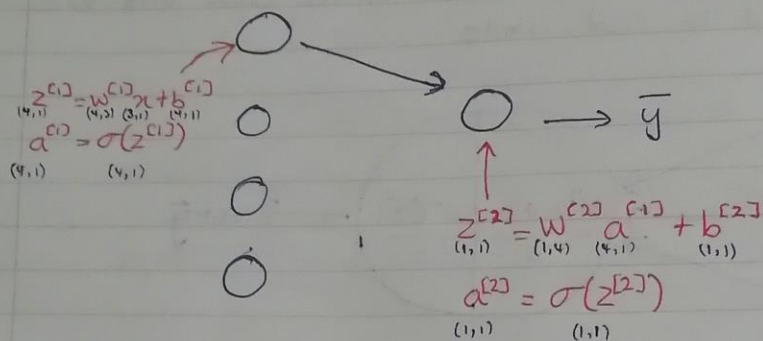 z^[1] = w^[1] x + b^[1]
(4,1) (4,3) (3,1) (4,1)
a^[1] = σ(z^[1])
(4,1) (4,1)
ȳ
z^[2] = w^[2] a^[1] + b^[2]
(1,1) (1,4) (4,1) (1,1)
a^[2] = σ(z^[2])
(1,1) (1,1)